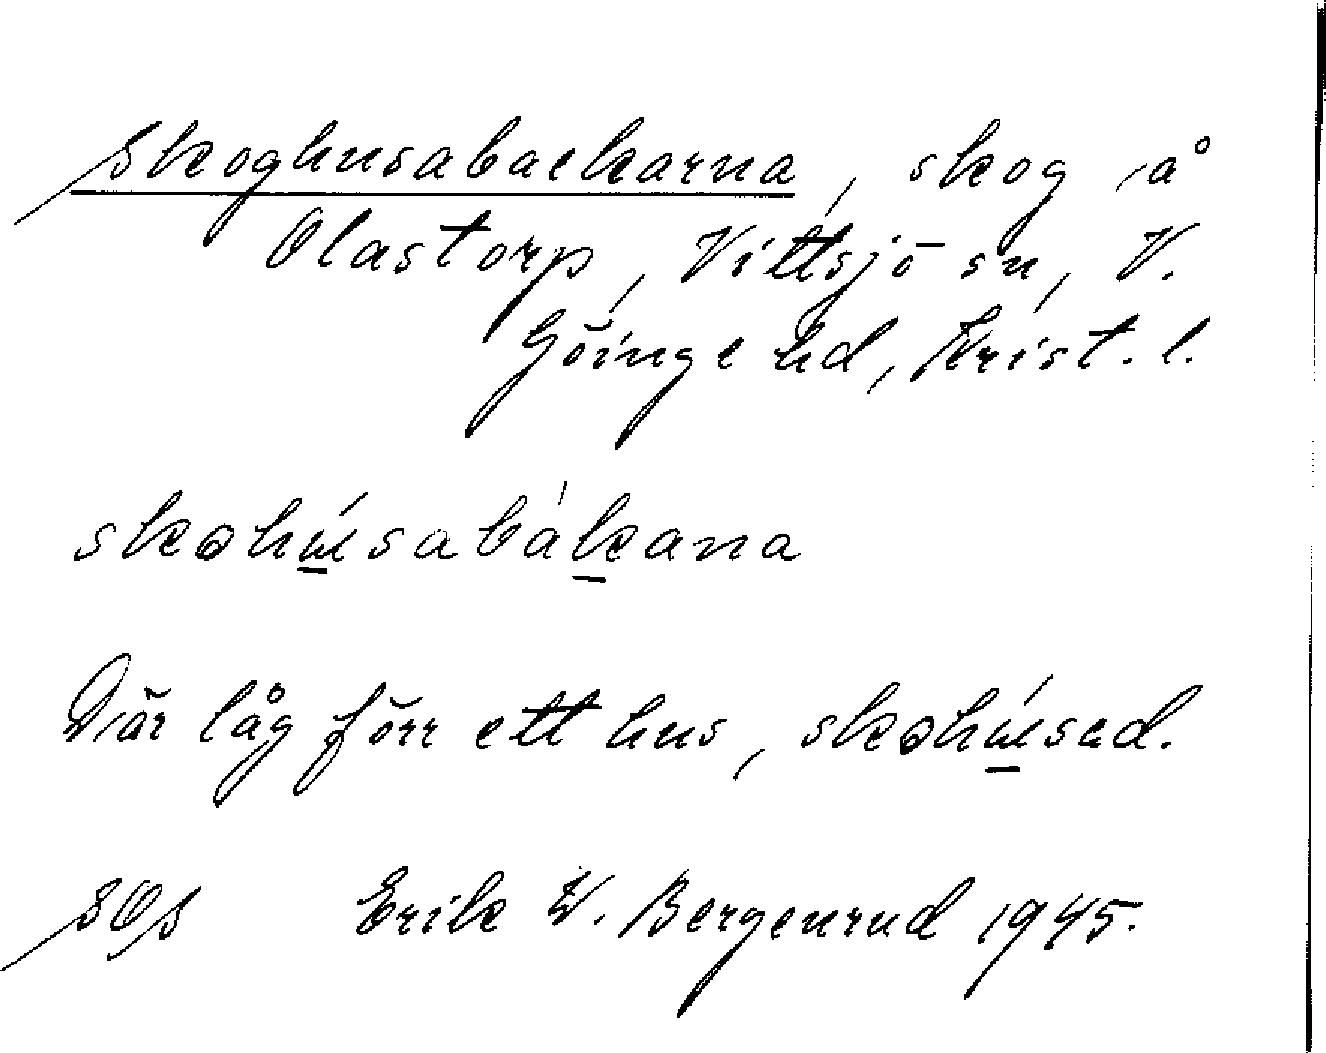 Skoghusabackarna, skog å
Olastorp, Vittsjö sn, V.
Göinge hd, Krist. l.
skohúsabákana
Där låg förr ett hus, skohúsad.
SOs Erik W. Bergenrud 1945.